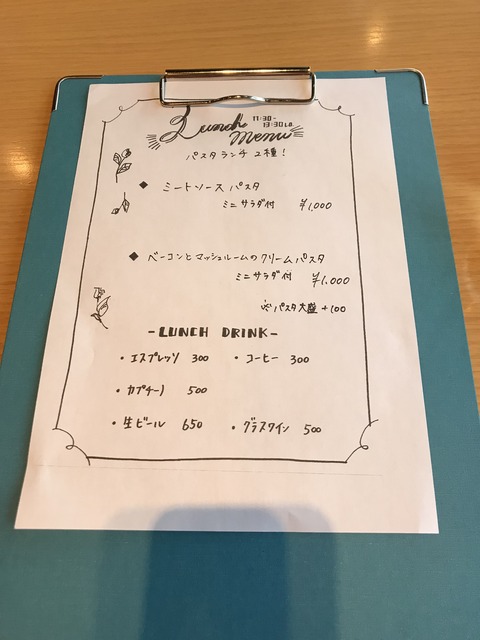 Lunch 11:30-
Menu 13:30 L.O.
パスタランチ 2種!
◆ ミートソース パスタ
ミニサラダ付 ¥1,000
◆ ベーコンとマッシュルームのクリームパスタ
ミニサラダ付 ¥1,000
※パスタ大盛 +100
-LUNCH DRINK-
・エスプレッソ 300 ・コーヒー 300
・カプチーノ 500
・生ビール 650 ・グラスワイン 500